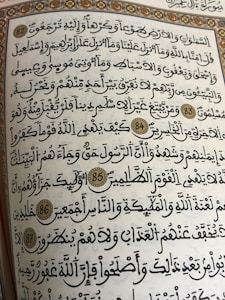 سورة آل عمران
السموات والأرض طوعا وكرها وإليه ترجعون 82
قل آمنا بالله وما أنزل علينا وما أنزل على إبراهيم وإسمعيل
وإسحق ويعقوب والأسباط وما أوتي موسى وعيسى
والنبيئون من ربهم لا نفرق بين أحد منهم ونحن له
مسلمون 83 ومن يبتغ غير الإسلم دينا فلن يقبل منه وهو
في الآخرة من الخسرين 84 كيف يهدي الله قوما كفروا
إيمنهم وشهدوا أن الرسول حق وجاءهم البينت
لا يهدي القوم الظلمين 85 أولئك جزاؤهم أن
لعنة الله والملئكة والناس أجمعين 86 خلدين
لا يخفف عنهم العذاب ولا هم ينظرون 87
من بعد ذلك وأصلحوا فإن الله غفور